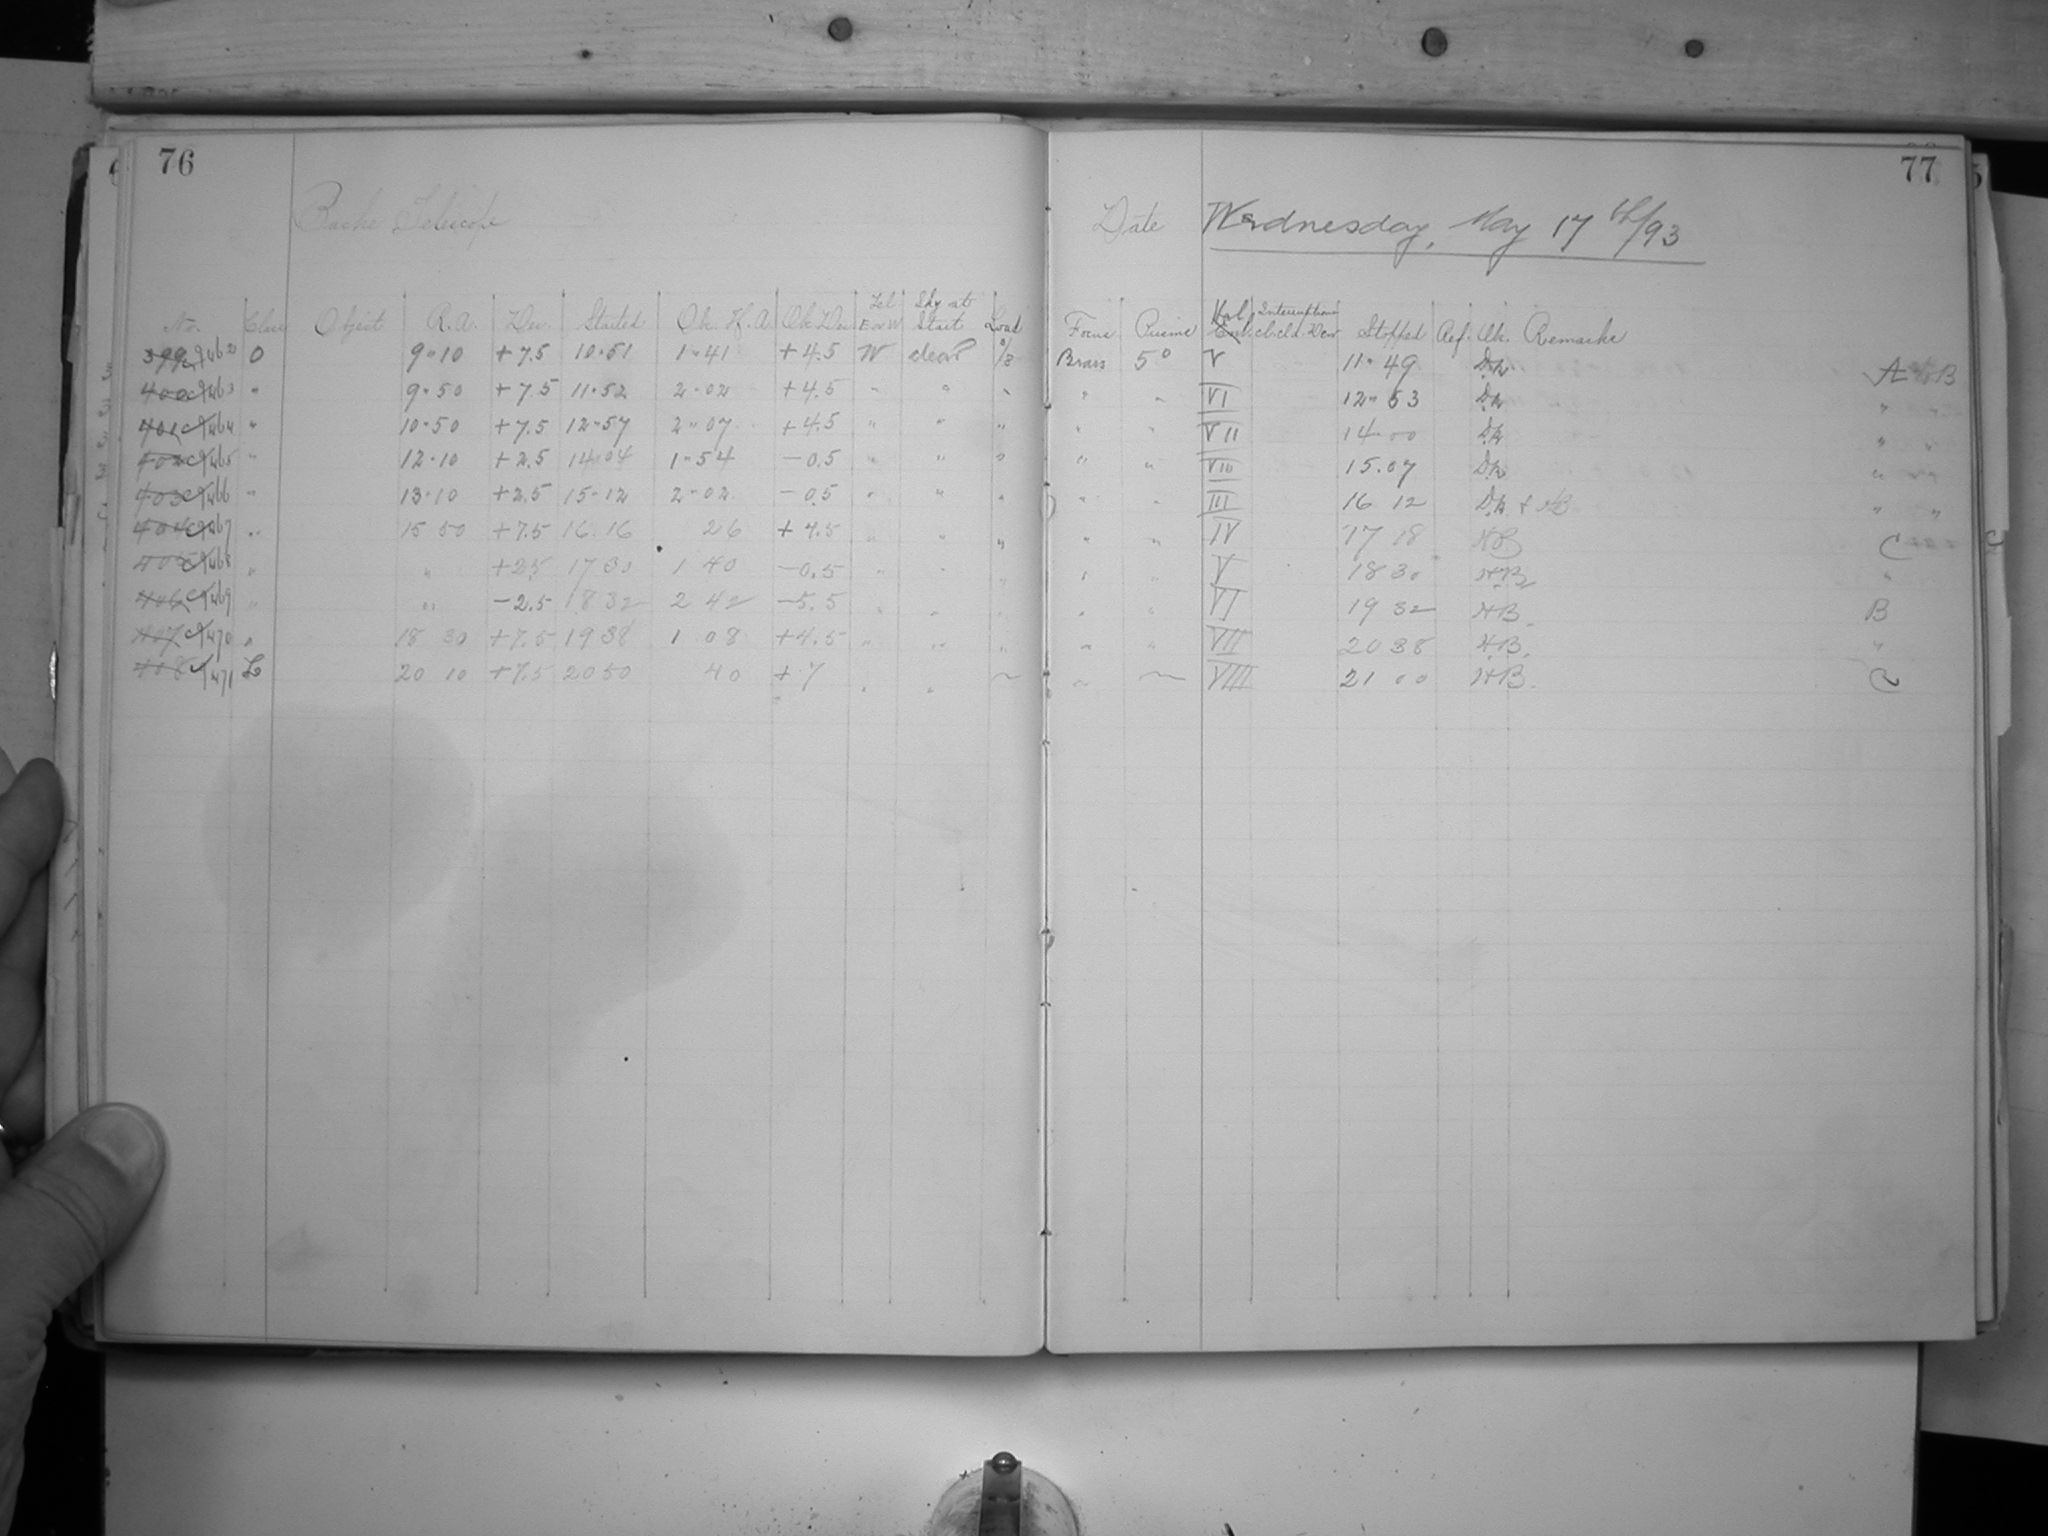 76
Bache Telescope
No. Class Object R.A. Dec. Started Ob. H.A. Ob. Dec. Tel E or W Sky at Start Load
399 9462 O 9-10 +7.5 10-51 1-41 +4.5 W clear
400 9463 " 9-50 +7.5 11-52 2-02 +4.5 " " "
401 9464 " 10-50 +7.5 12-57 2-07 +4.5 " " "
402 9465 " 12-10 +2.5 14-04 1-54 -0.5 " " "
403 9466 " 13-10 +2.5 15-12 2-02 -0.5 " " "
404 9467 " 15 50 +7.5 16.16 26 +4.5 " " "
405 9468 " " +2.5 17 30 1 40 -0.5 " " "
406 9469 " " -2.5 18 32 2 42 -5.5 " " "
407 9470 " 18 30 +7.5 19 38 1 08 +4.5 " " "
408 9471 L 20 10 +7.5 20 50 40 +7 " " ~
77
Date Wednesday, May 17th/93
Focus Prisms Hol. Interruptions cl. cld. Dew Stopped Ref. Ob. Remarks
Brass 5° V 11-49 A B
" " VI 12-53 " "
" " VII 14-00 " "
" " VIII 15.07 " "
" " III 16 12 " "
" " IV 17 18 HB C
" " V 18 30 HB "
" " VI 19 32 HB. B
" " VII 20 38 H.B. "
" ~ VIII 21 00 HB. C